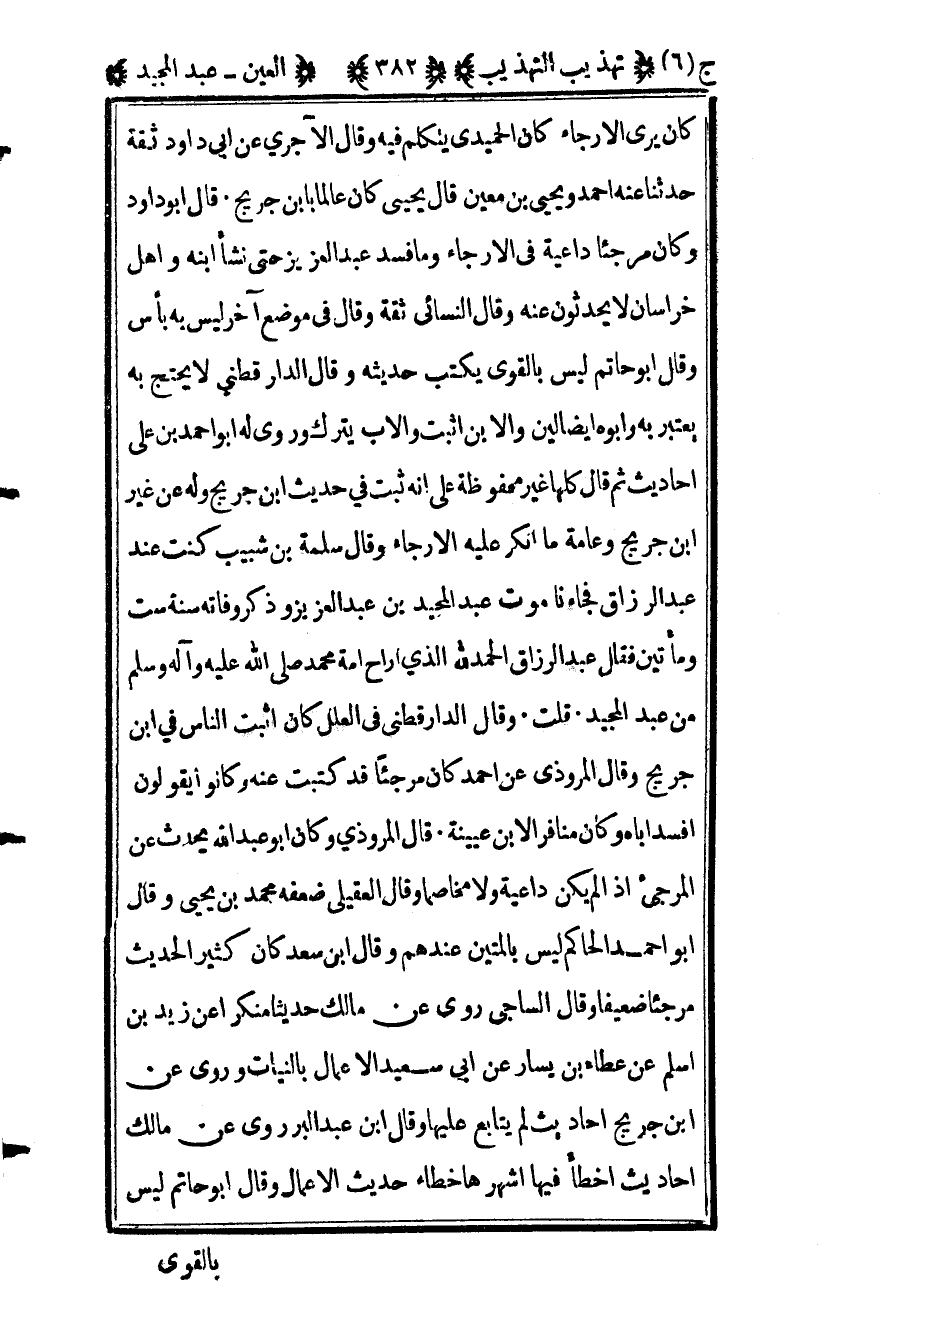 ج (٦) ﴿ تهذيب التهذيب ﴾ ﴿ ٣٨٢ ﴾ ﴿ العين - عبد المجيد ﴾
كان يرى الارجاء كان الحميدى يتكلم فيه وقال الآجري عن ابى داود ثقة
حدثنا عنه احمد ويحيى بن معين قال يحيى كان عالما بابن جريج ٠ قال ابو داود
وكان مرجئا داعية فى الارجاء وما فسد عبد العزيز حتى نشأ ابنه و اهل
خراسان لا يحدثون عنه وقال النسائى ثقة وقال فى موضع آخر ليس به بأس
وقال ابو حاتم ليس بالقوى يكتب حديثه و قال الدار قطني لا يحتج به
يعتبر به وابوه ايضا لين والا بن اثبت والاب يترك وروى له ابو احمد بن على
احاديث ثم قال كلها غير محفوظة على انه ثبت في حديث ابن جريج وله عن غير
ابن جريج وعامة ما انكر عليه الارجاء وقال سلمة بن شبيب كنت عند
عبد الرزاق فجاءنا موت عبد المجيد بن عبد العزيز و ذكر وفاته سنة ست
ومأتين فقال عبد الرزاق الحمد لله الذي اراح امة محمد صلى الله عليه وآله وسلم
من عبد المجيد ٠ قلت ٠ وقال الدارقطنى فى العلل كان اثبت الناس في ابن
جريج وقال المروذى عن احمد كان مرجئًا قد كتبت عنه وكانوا يقولون
افسد اباه وكان منافرا لا بن عيينة ٠ قال المروذي وكان ابو عبد الله يحدث عن
المرجئ اذا لم يكن داعية ولا مخاصما وقال العقيلى ضعفه محمد بن يحيى و قال
ابو احمد الحاكم ليس بالمتين عندهم و قال ابن سعد كان كثير الحديث
مرجئا ضعيفا وقال الساجى روى عن مالك حديثا منكرا عن زيد بن
اسلم عن عطاء بن يسار عن ابي سعيد الاعمال بالنيات و روى عن
ابن جريج احاديث لم يتابع عليها وقال ابن عبد البر روى عن مالك
احاديث اخطأ فيها اشهرها خطاء حديث الاعمال وقال ابو حاتم ليس
بالقوى